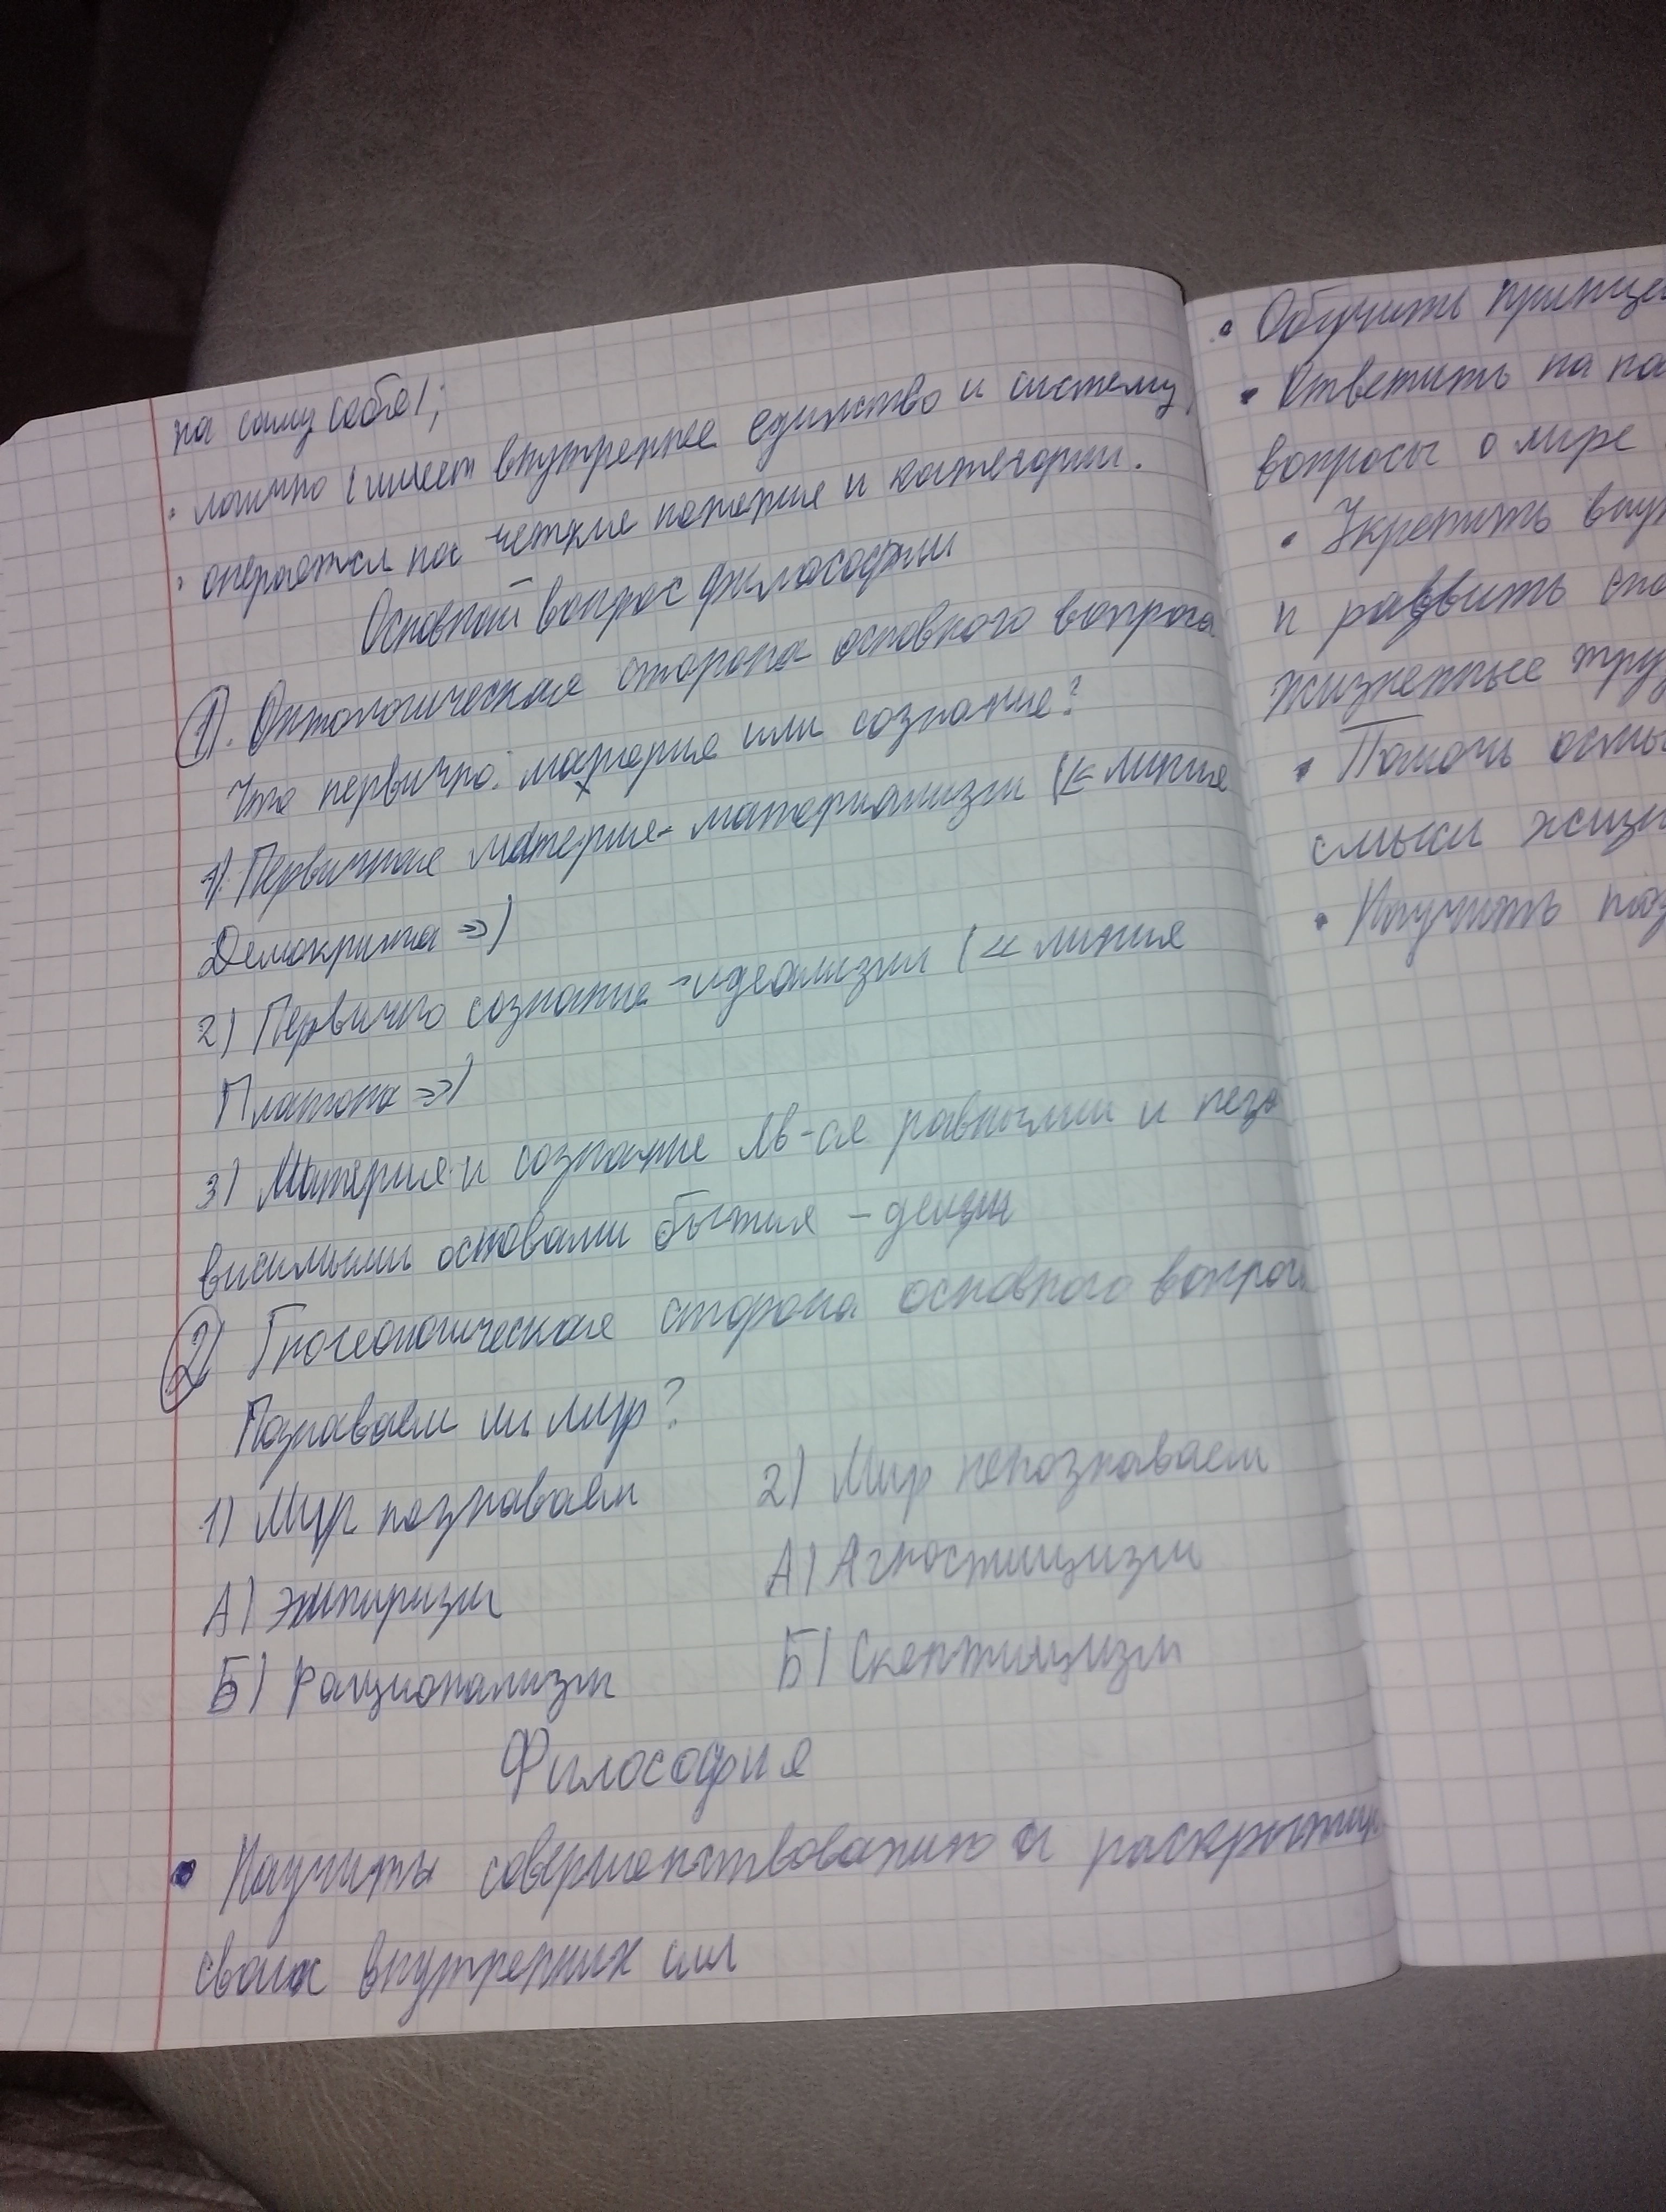 на саму себя);
· логично (имеет внутреннее единство и систему)
· опирается на четкие понятия и категории.
Основной вопрос философии
1). Онтологическая сторона основного вопроса
Что первично: материя или сознание?
1). Первичная материя - материализм (« линия
Демокрита »)
2) Первично сознание - идеализм (« линия
Платона »)
3) Материя и сознание яв-ся равными и неза
висимыми основами бытия -
2) Гносеологическая сторона основного вопроса
Познаваем ли мир?
1) Мир познаваем
2) Мир непознаваем
А) Эмпиризм
А) Агностицизм
Б) Рационализм
Б) Скептицизм
Философия
• Научить совершенствованию и раскрытию
своих внутренних сил
• Обучить
• Ответить на
вопросы о мире
• Укрепить
и развить
жизненные
• Помочь
смысл
• Научить